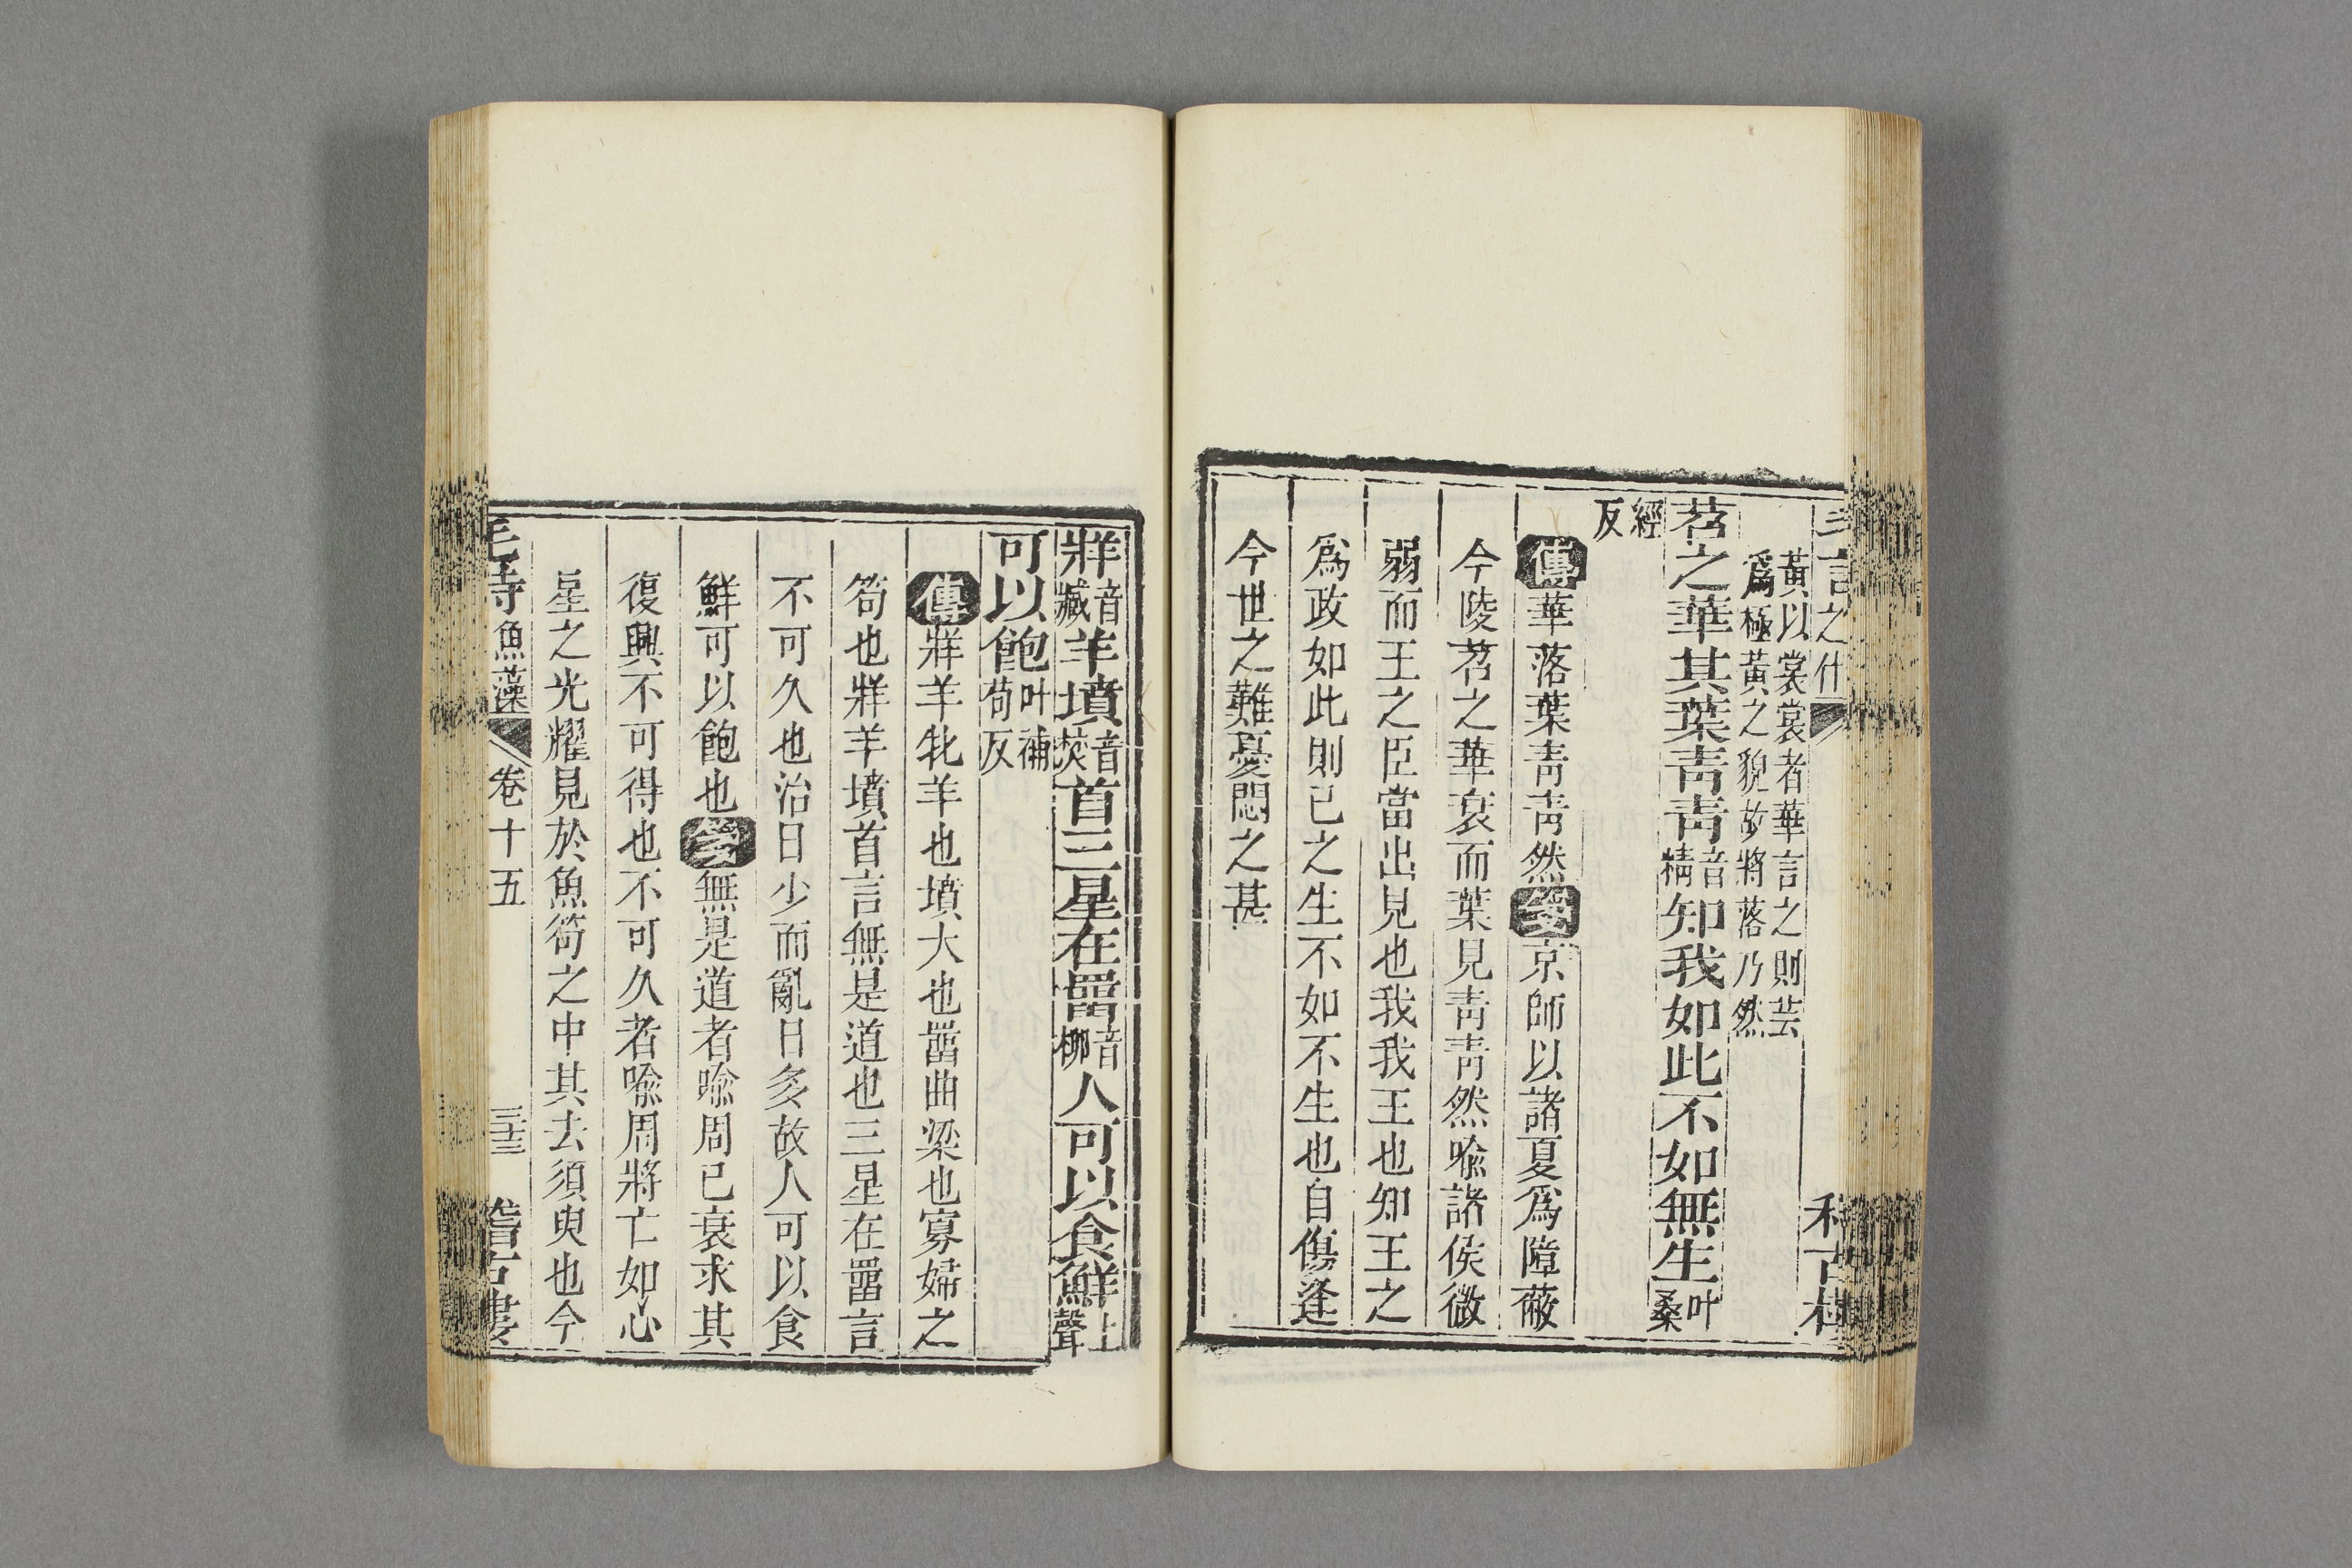 之什
黃以裳裳者華言之則芸
爲極黃之貌故將落乃然
苕之華其葉靑靑音精知我如此不如無生叶桑
經反
傳華落葉靑靑然箋京師以諸夏爲障蔽
今陵苕之華衰而葉見靑靑然喻諸侯微
弱而王之臣當出見也我我王也知王之
爲政如此則已之生不如不生也自傷逢
今世之難憂悶之甚
牂音臧羊墳音焚首三星在罶音柳人可以食鮮上聲
可以飽叶補苟反
傳牂羊牝羊也墳大也罶曲梁也寡婦之
笱也牂羊墳首言無是道也三星在罶言
不可久也治日少而亂日多故人可以食
鮮可以飽也箋無是道者喻周已衰求其
復興不可得也不可久者喻周將亡如心
星之光耀見於魚笱之中其去須臾也今
毛詩魚藻 卷十五 稽古樓